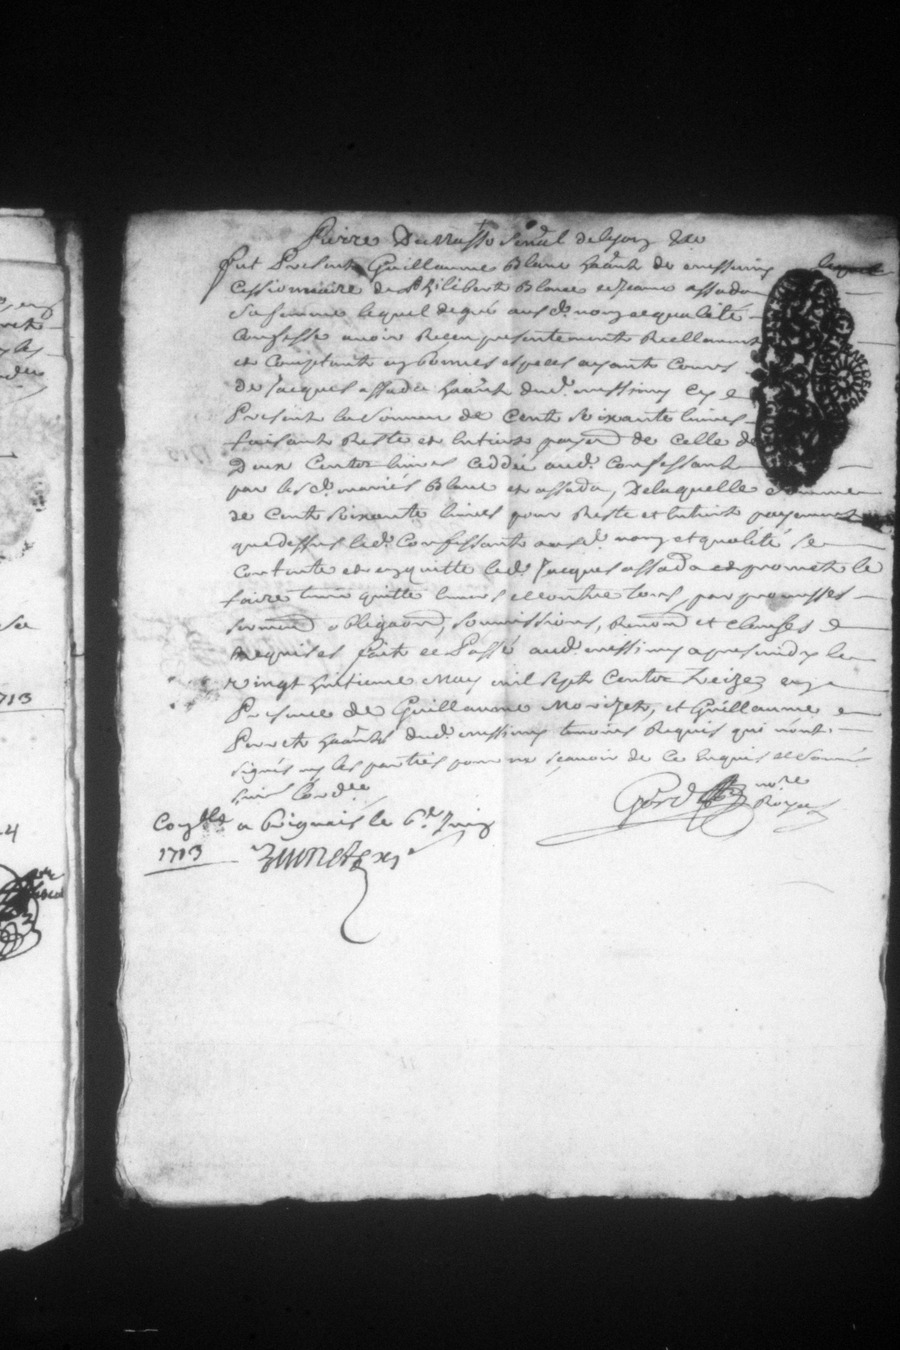 Pierre Dumas Senal de lyon &c
fut Present Guillaume Blanc haant de messimy lequel
Cessionnaire de Philibert Blanc et Jeanne assada
Sa femme lequel de gré ausd. nom et qualité
Confesse avoir Receu presentement Reellement
et Comptant en bonnes especes ayant Cours
de Jacques assada haant dud. messimy Cy
Present la Somme de Cent Soixante livres
faisant Reste et Entier payem de Celle de
Deux Centz livres Ceddée aud. Confessant
par lesd. mariés Blanc et assada, De laquelle Somme
de Cent Soixante livres pour Reste et Entier payement
que dessus led. Confessant ausd. nom et qualité Se
Contente et en quitte led. Jacques assada et promet le
faire tenir quitte Envers et Contre tous, par promesses
serment obligaon, Soumissions, Renon et Clauses
Requises fait et Passé aud. messimy apres midy le
vingt huitieme May mil Sept Centz Treize en
Presence de Guillaume Morizet, et Guillaume
Perret haants dud. messimy temoins Requis qui n'ont
signés ny les parties pour ne sçavoir de Ce Enquis et Sommés
suiv. l'ord.ce
nore
Royal
Conlle a Brignais le 6e Juin
1713